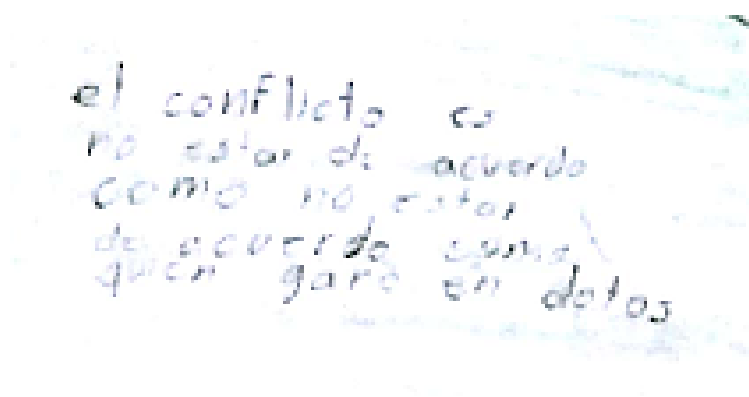 el conflicto es
no estar de acuerdo
como no estar
de acuerdo como
quien gano en datos